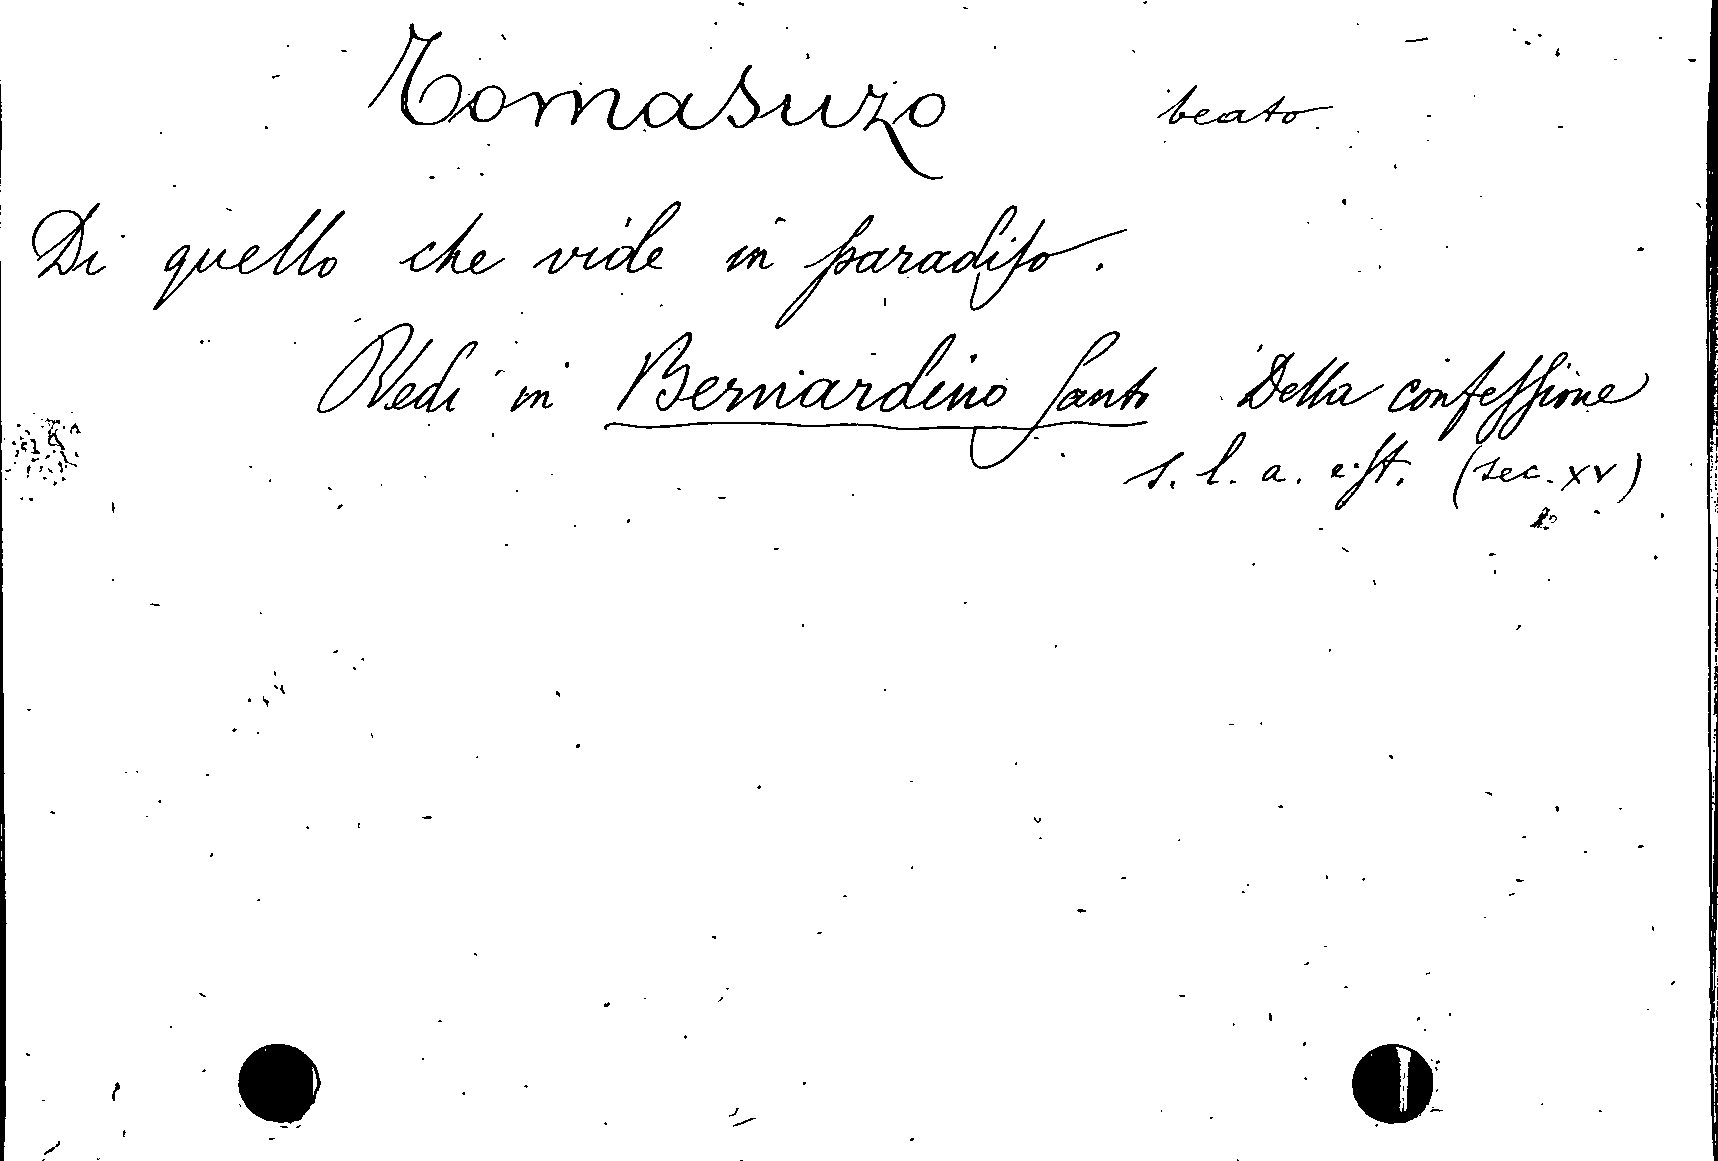 Tomasuzo beato
Di quello che vide in paradiſo.
Vedi in Bernardino Santo Della confeſſione
s. l. a. e ſt. (sec. XV)